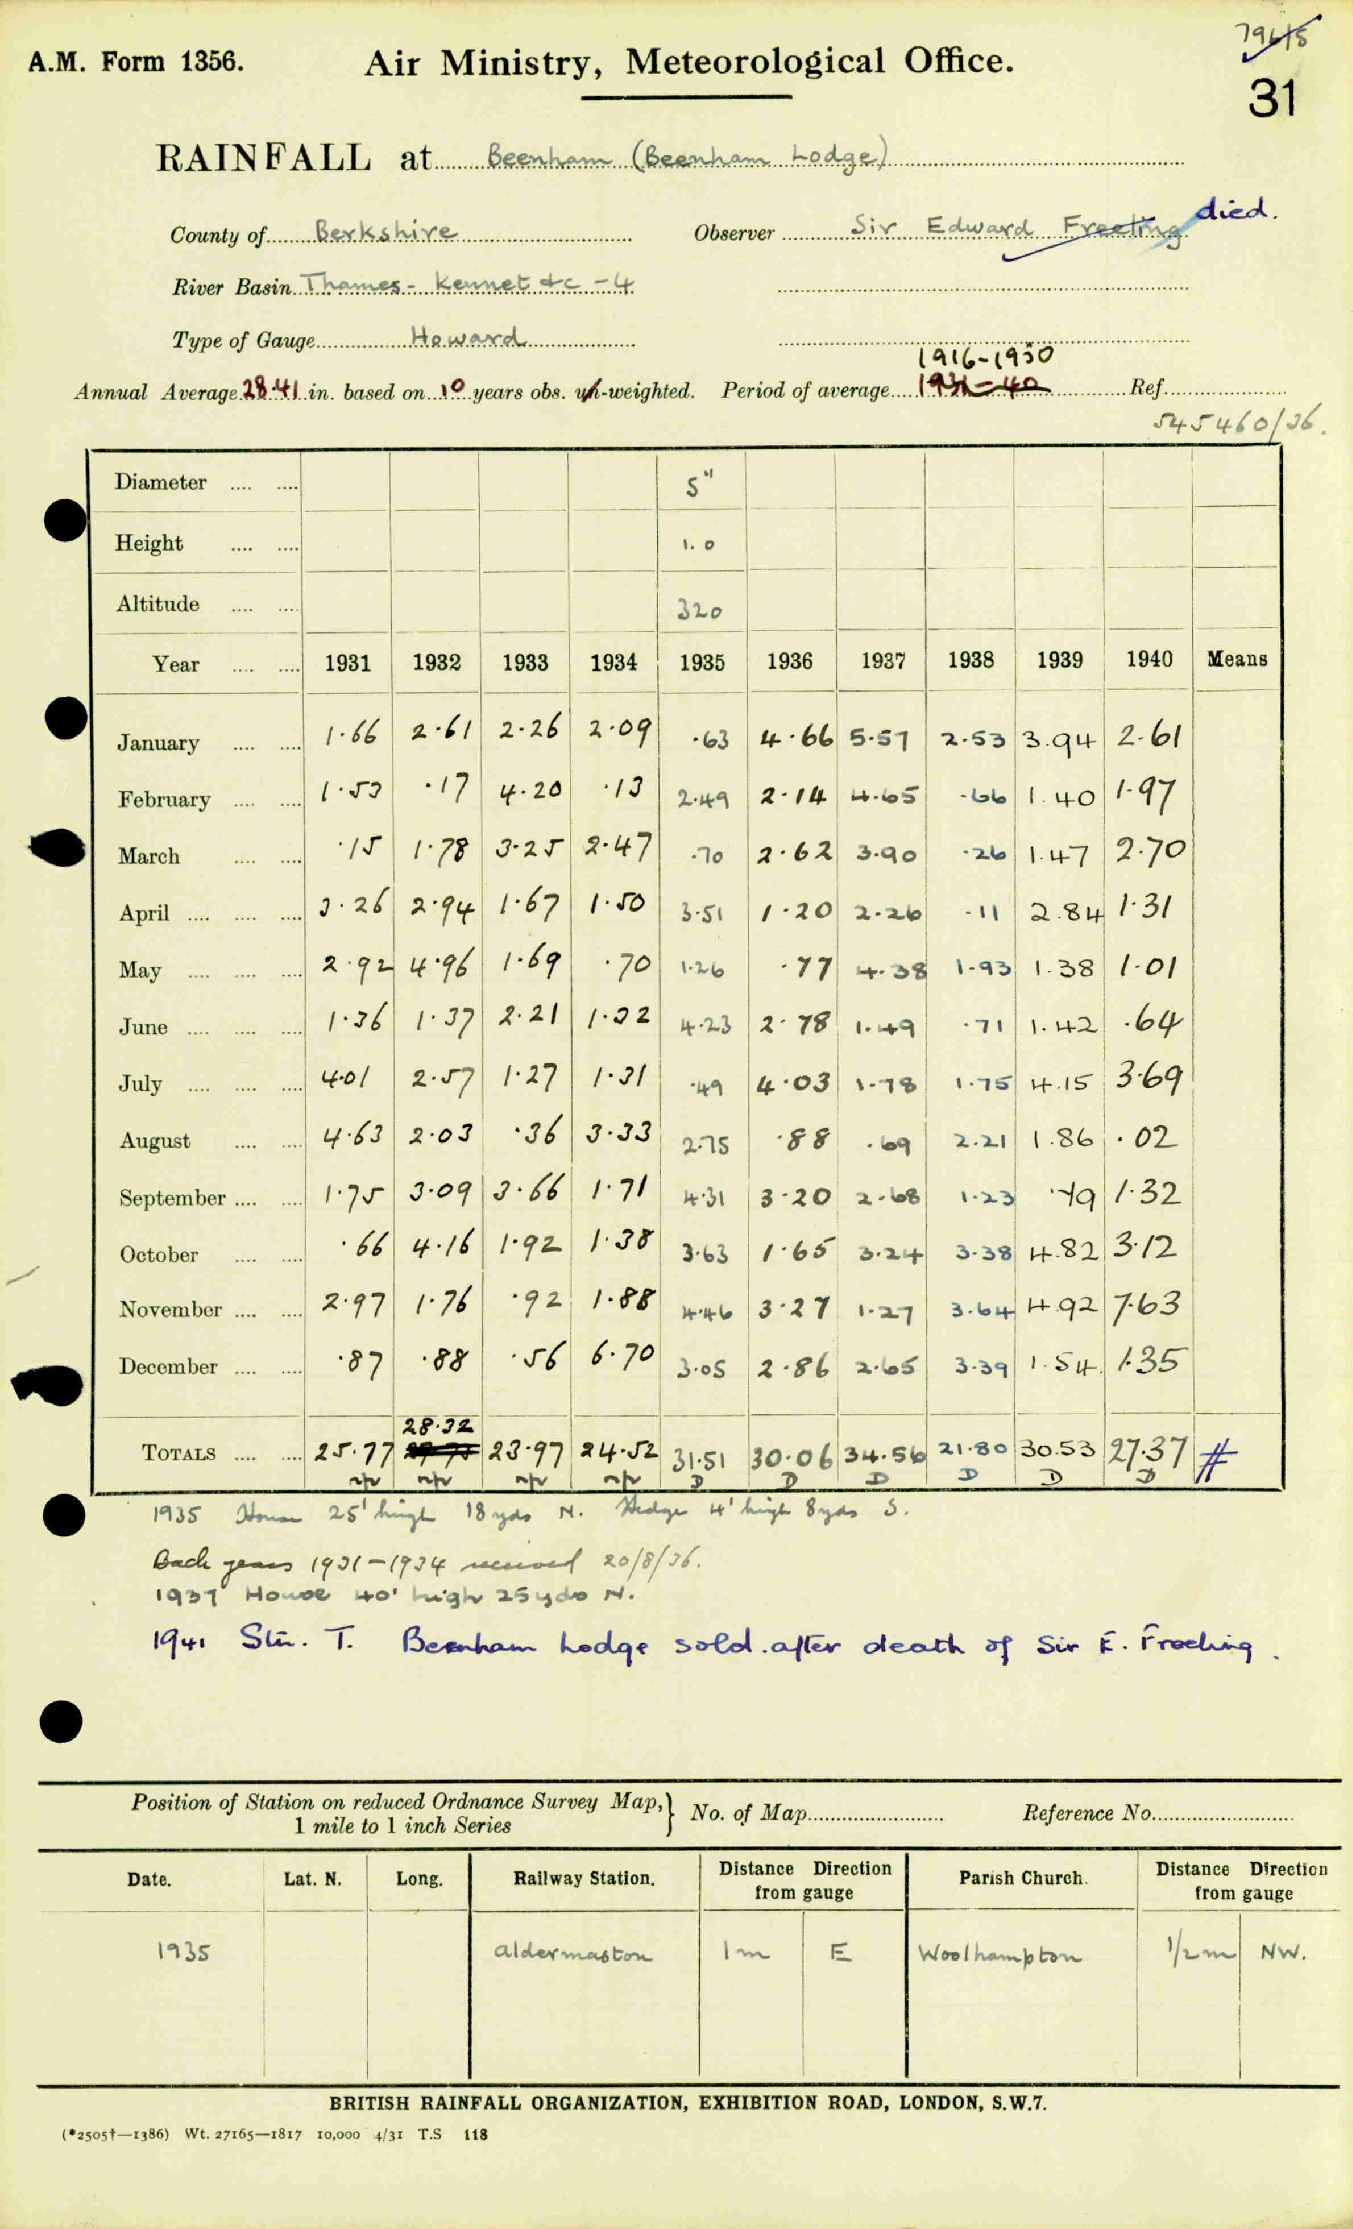 7961/5
A.M. Form 1356.
Air Ministry, Meteorological Office.
31
RAINFALL at Beenham (Beenham Lodge)
County of Berkshire Observer Sir Edward Freeling died.
River Basin Thames - Kennet &c - 4
Type of Gauge Howard
1916-1950
Annual Average 28.41 in. based on 10 years obs. un-weighted. Period of average 1931-40 Ref.
545460/36.
Diameter .... .... 5"
Height .... .... 1.0
Altitude .... .... 320
Year .... .... 1931 1932 1933 1934 1935 1936 1937 1938 1939 1940 Means
January .... .... 1·66 2·61 2·26 2·09 ·63 4·66 5·57 2·53 3.94 2·61
February .... .... 1·53 ·17 4·20 ·13 2·49 2·14 4·65 ·66 1.40 1·97
March .... .... ·15 1·78 3·25 2·47 ·70 2·62 3·90 ·26 1.47 2·70
April .... .... .... 3·26 2·94 1·67 1·50 3·51 1·20 2·26 ·11 2.84 1·31
May .... .... .... 2·92 4·96 1·69 ·70 1·26 ·77 4·38 1·93 1.38 1·01
June .... .... .... 1·36 1·37 2·21 1·32 4·23 2·78 1·49 ·71 1.42 ·64
July .... .... .... 4·01 2·57 1·27 1·31 ·49 4·03 1·78 1·75 4.15 3·69
August .... .... 4·63 2·03 ·36 3·33 2·75 ·88 ·69 2·21 1.86 ·02
September .... .... 1·75 3·09 3·66 1·71 4·31 3·20 2·68 1·23 ·79 1·32
October .... .... ·66 4·16 1·92 1·38 3·63 1·65 3·24 3·38 4.82 3·12
November .... .... 2·97 1·76 ·92 1·88 4·46 3·27 1·27 3·64 4.92 7·63
December .... .... ·87 ·88 ·56 6·70 3·05 2·86 2·65 3·39 1.54 1·35
28·32
TOTALS .... .... 25·77 23·97 24·52 31·51 30·06 34·56 21·80 30.53 27·37 #
n/r n/r n/r n/r D D D D D D
1935 House 25' high 18 yds N. Hedge 4' high 8 yds S.
Back years 1931-1934 received 20/8/36.
1937 House 40' high 25 yds N.
1941 Stn. T. Beenham Lodge sold after death of Sir E. Freeling.
Position of Station on reduced Ordnance Survey Map, } No. of Map Reference No.
1 mile to 1 inch Series
Date. Lat. N. Long. Railway Station. Distance Direction from gauge Parish Church. Distance Direction from gauge
1935 Aldermaston 1 m E Woolhampton 1/2 m NW.
BRITISH RAINFALL ORGANIZATION, EXHIBITION ROAD, LONDON, S.W.7.
(*2505†—1386) Wt. 27165—1817 10,000 4/31 T.S 118